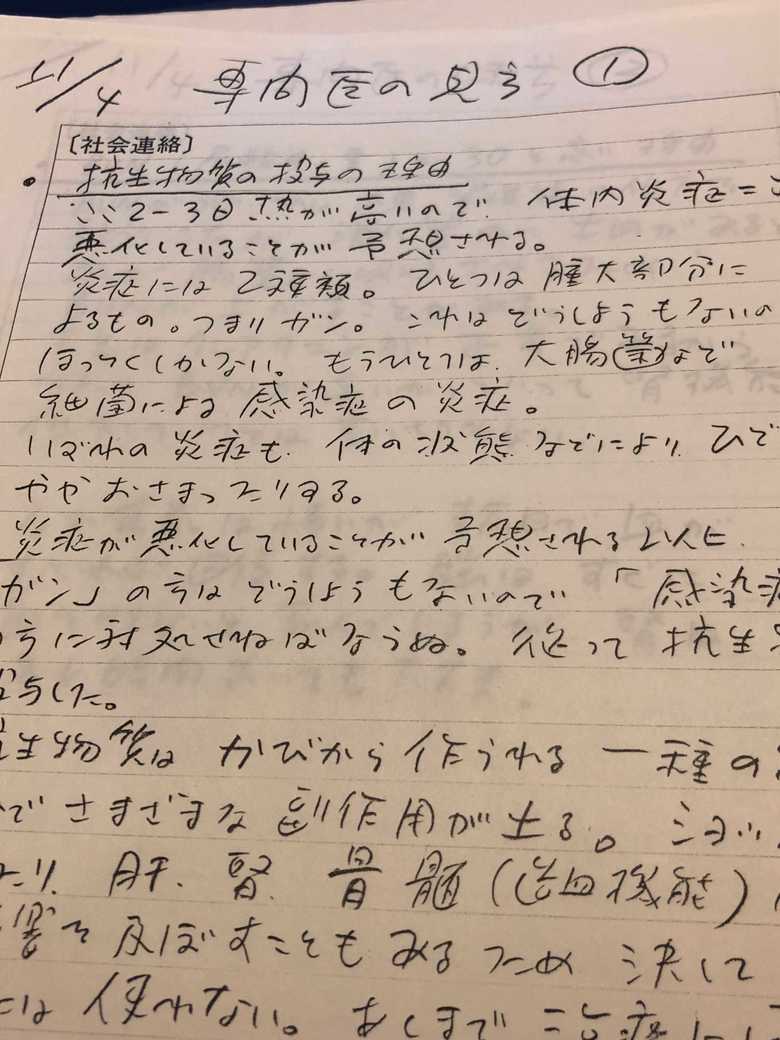 11/4 専門医の見方 ①
〔社会連絡〕
・抗生物質の投与の理由
ここ2-3日熱が高いので、体内炎症=
悪化していることが予想される。
炎症には2種類。ひとつは腫大部分に
よるもの。つまりガン。これはどうしようもないの
ほっとくしかない。もうひとつは、大腸菌など
細菌による感染症の炎症。
いずれの炎症も、体の状態などにより、ひど
ややおさまったりする。
炎症が悪化していることが予想される以上、
ガン」の方はどうしようもないので「感染症
方に対処せねばならぬ。従って抗生
与した。
生物質はかびから作られる一種の
でさまざまな副作用が出る。ショッ
たり、肝、腎、骨髄(造血機能)
響を及ぼすこともあるため決して
には使わない。あくまで治療に